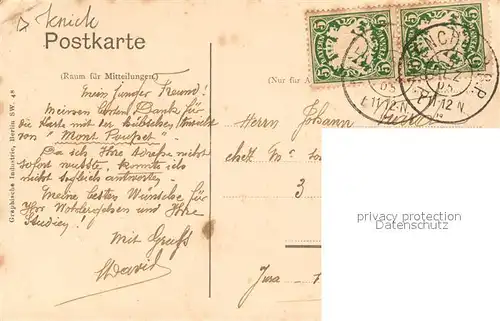 knick
Postkarte
(Raum für Mitteilungen)
Mein junger Freund!
Meinen besten Dank für
die Karte mit der hübschen Ansicht
von "Mont Poupet"
Da ich Ihre Adresse nicht
sofort wusste, konnte ich
nicht sogleich antworten.
Meine besten Wünsche für
Ihr Wohlergehen und Ihre
Studien!
Mit Gruss
David
Graphische Industrie, Berlin SW. 48
(Nur für A
5 5
Herrn Johann
chez Mr
3
Jura
privacy protection
Datenschutz